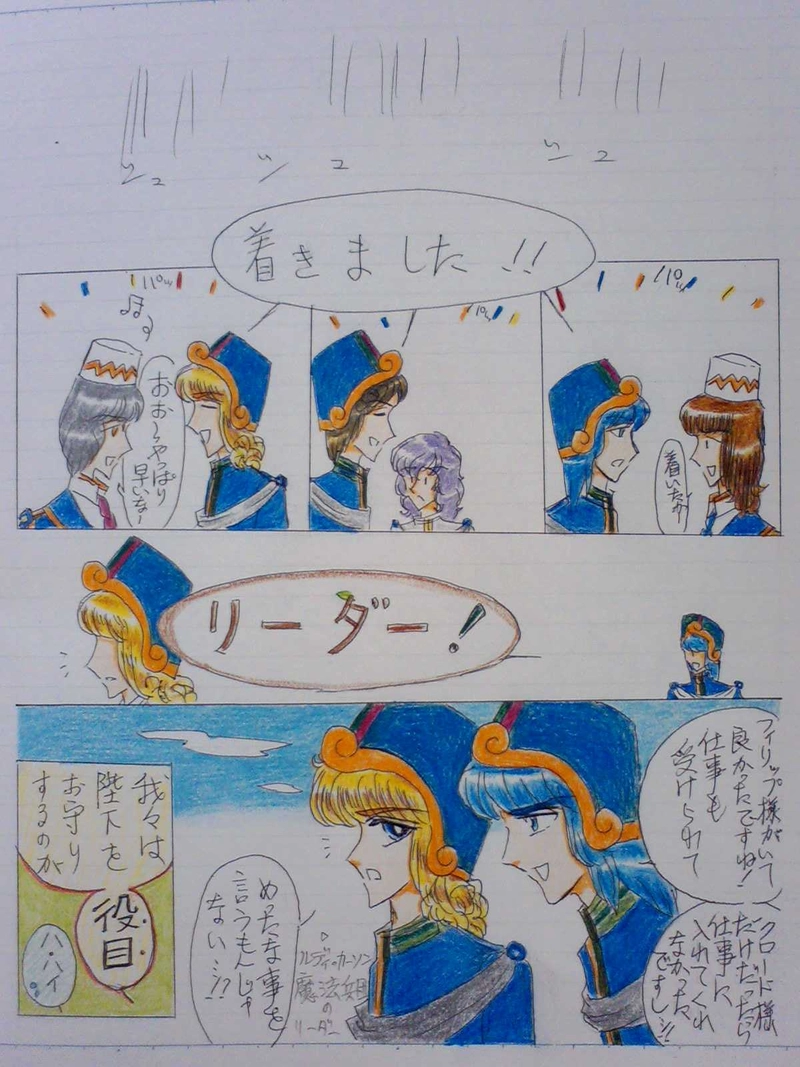 ジュ
ジュ
ジュ
着きました!!
パパッ
着いたか
パパッ
パパッ
おお〜やっぱり
早いなー
リーダー!
フィリップ様がいて
良かったですね!
仕事も
受けられて
クロード様
だけだったら
仕事に
入れてくれ
なかった
ですし!!
めったな事を
言うもんじゃ
ない!!?
ルディ・カーソン
魔法組
の
リーダー
我々は
陛下を
お守り
するのが
役目
ハ、ハイ